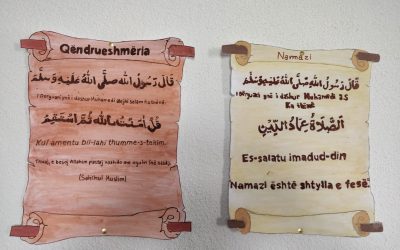 Qëndrueshmëria
قَالَ رَسُولُ اللّٰهِ صَلَّى اللّٰهُ عَلَيْهِ وَسَلَّمَ
I Dërguari ynë i dashur Muhamedi
قُلْ اٰمَنْتُ بِاللّٰهِ ثُمَّ اسْتَقِمْ
Kul amentu bil-lahi thumme-s-tekim.
(Sahihul Muslim)
Namazi
قَالَ رَسُولُ اللّٰهِ صَلَّى اللّٰهُ عَلَيْهِ وَسَلَّمَ
I Dërguari ynë i dashur Muhamedi a.s
Ka thënë
اَلصَّلَاةُ عِمَادُ الدِّينِ
Es-salatu imadud-din
Namazi është shtylla e fesë.